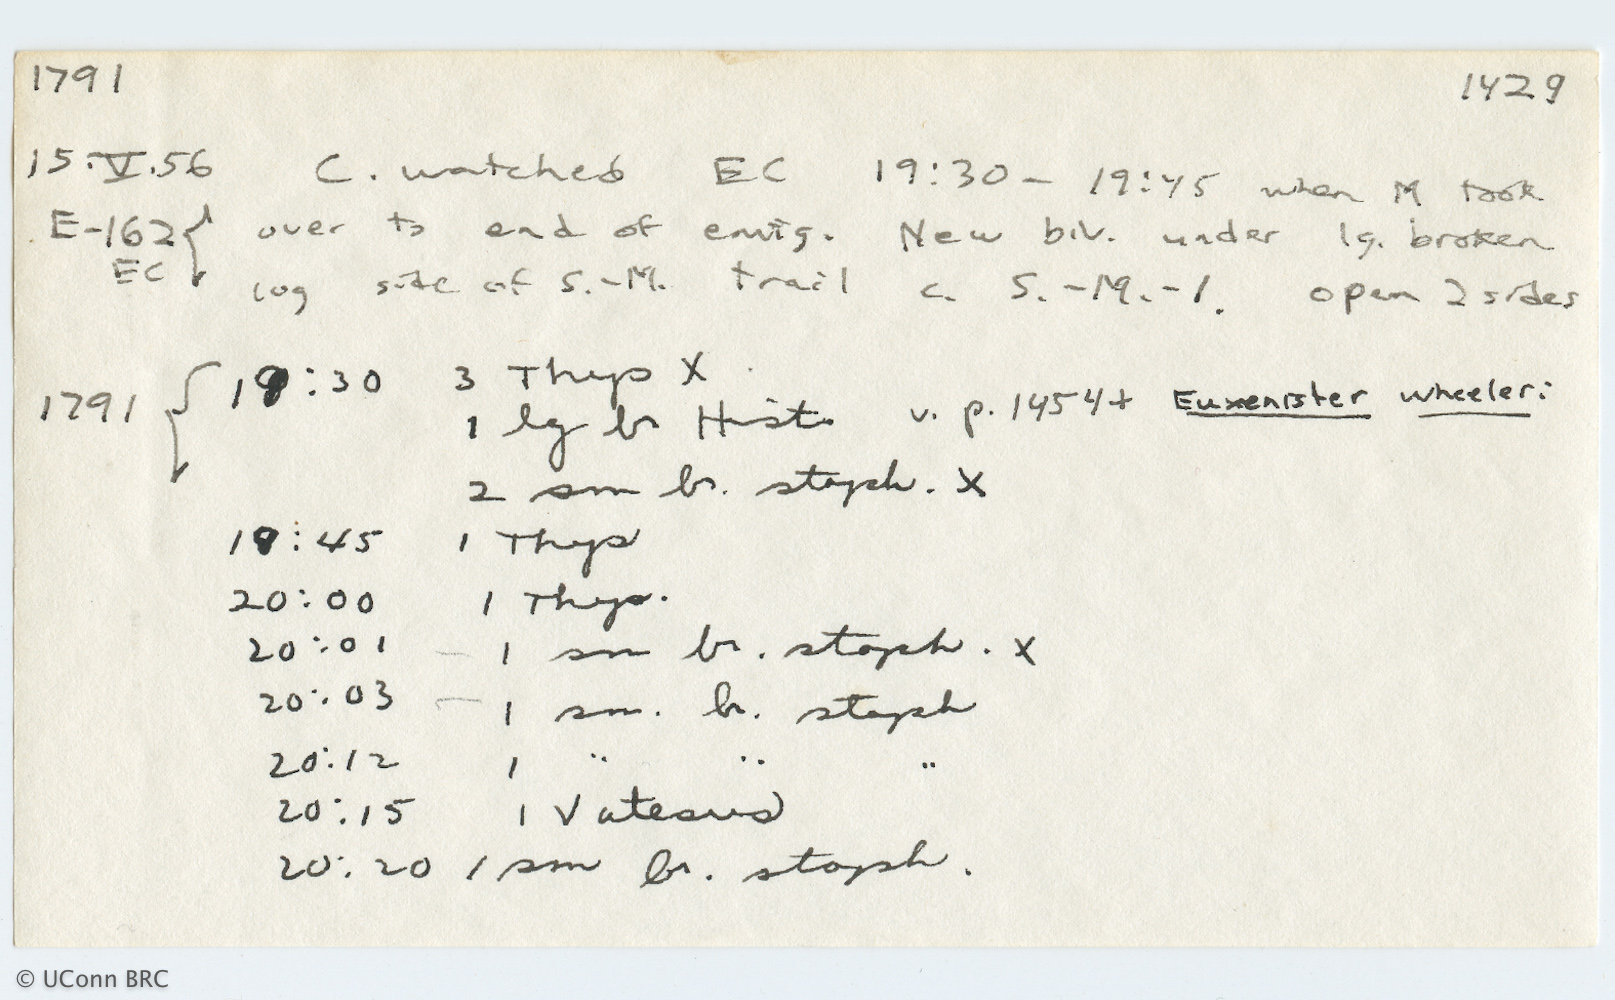 1791 1429
15.V.56 C. watched EC 19:30 – 19:45 when M took
E-162 over to end of emig. New biv. under lg. broken
EC log side of S.-M. trail c. S.-M.-1. open 2 sides
1791 19:30 3 Thyps X
1 lg br Hist. v. p. 1454+ Euxenister wheeleri
2 sm br. staph. X
19:45 1 Thyps
20:00 1 Thyps.
20:01 – 1 sm br. staph. X
20:03 – 1 sm. br. staph
20:12 1 " " "
20:15 1 Vatesus
20:20 1 sm br. staph.
© UConn BRC